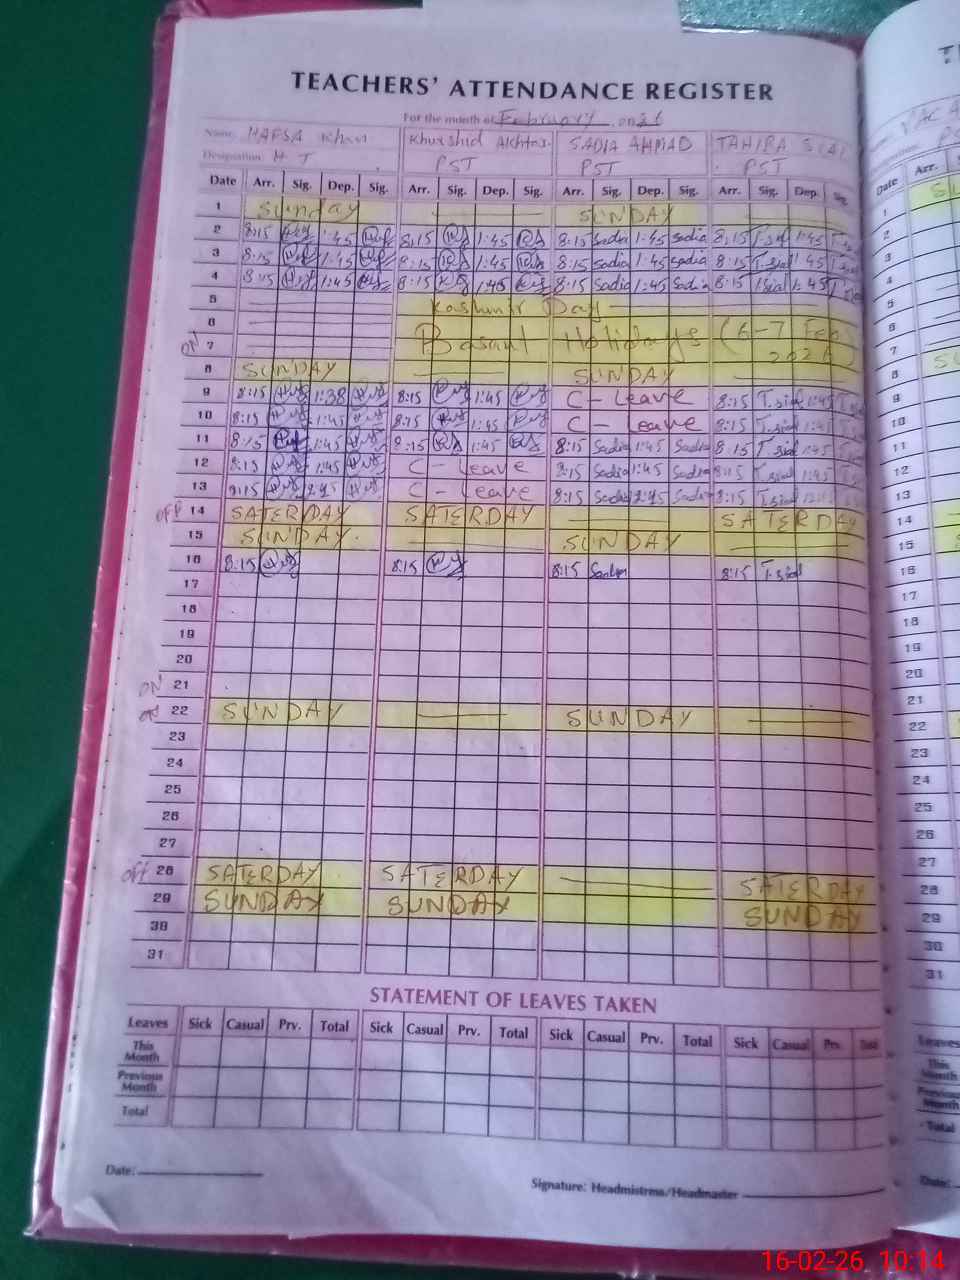 TEACHERS' ATTENDANCE REGISTER
For the month of February 2026
Name: HAFSA Khan Khurshid Akhtar SADIA AHMAD TAHIRA SIAL
Designation: H T PST PST PST
Date Arr. Sig. Dep. Sig. Arr. Sig. Dep. Sig. Arr. Sig. Dep. Sig. Arr. Sig. Dep. Sig.
1 Sunday SUNDAY
2 8:15 1:45 8:15 1:45 8:15 Sadia 1:45 Sadia 8:15 T.sial 1:45
3 8:15 1:45 8:15 1:45 8:15 Sadia 1:45 Sadia 8:15 T.sial 1:45
4 8:15 1:45 8:15 1:45 8:15 Sadia 1:45 Sadia 8:15 T.sial 1:45
5 Kashmir Day
6 Basant Holidays (6-7 Feb
ON 7 2026)
8 SUNDAY SUNDAY
9 8:15 1:38 8:15 1:45 C-Leave 8:15 T.sial 1:45
10 8:15 1:45 8:15 1:45 C-Leave 8:15 T.sial 1:45
11 8:15 1:45 8:15 1:45 8:15 Sadia 1:45 Sadia 8:15 T.sial 1:45
12 8:15 1:45 C-Leave 8:15 Sadia 1:45 Sadia 8:15 T.sial 1:45
13 8:15 C-Leave 8:15 Sadia Sadia 8:15 T.sial
OFF 14 SATERDAY SATERDAY SATERDAY
15 SUNDAY SUNDAY
16 8:15 8:15 8:15 Sadia 8:15 T.sial
17
18
19
20
ON 21
22 SUNDAY SUNDAY
23
24
25
26
27
Off 28 SATERDAY SATERDAY SATERDAY
29 SUNDAY SUNDAY SUNDAY
30
31
STATEMENT OF LEAVES TAKEN
Leaves Sick Casual Prv. Total Sick Casual Prv. Total Sick Casual Prv. Total Sick Casual Prv. Total
This Month
Previous Month
Total
Date:
Signature: Headmistress/Headmaster
Date Arr.
1
2
3
4
5
6
7
8
9
10
11
12
13
14
15
16
17
18
19
20
21
22
23
24
25
26
27
28
29
30
31
Leaves
This Month
Previous Month
Total
Date:
16-02-26, 10:14